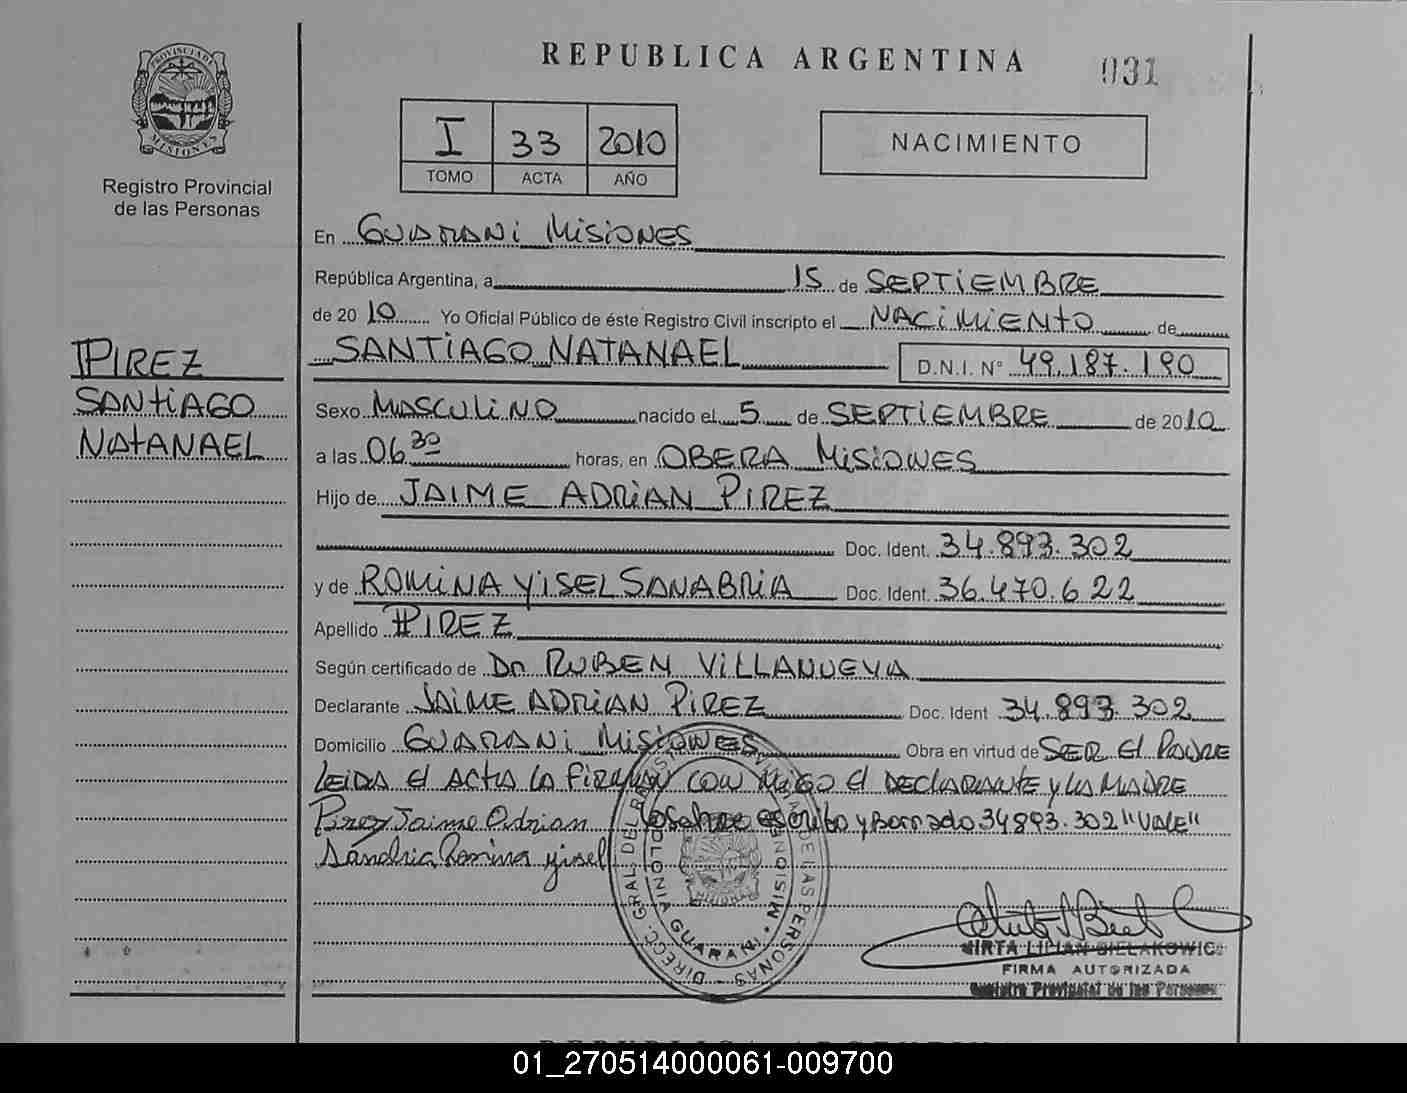 REPUBLICA ARGENTINA
031
PROVINCIA DE MISIONES
Registro Provincial
de las Personas
I 33 2010
TOMO ACTA AÑO
NACIMIENTO
En GUARANI MISIONES
República Argentina, a 15 de SEPTIEMBRE
de 2010 Yo Oficial Público de éste Registro Civil inscripto el NACIMIENTO de
SANTIAGO NATANAEL D.N.I. N° 49.187.190
PIREZ
SANTIAGO
NATANAEL
Sexo MASCULINO nacido el 5 de SEPTIEMBRE de 2010
a las 06 30 horas, en OBERA MISIONES
Hijo de JAIME ADRIAN PIREZ
Doc. Ident. 34.893.302
y de ROMINA YISEL SANABRIA Doc. Ident. 36.470.622
Apellido PIREZ
Según certificado de Dr RUBEN VILLANUEVA
Declarante JAIME ADRIAN PIREZ Doc. Ident 34.893 302
Domicilio GUARANI MISIONES Obra en virtud de SER El PADRE
LEIDA El ACTA LA FIRMAN CON MIGO El DECLARANTE y LA MADRE
Pirez Jaime Adrian Sobre escrito y Borrado 34893.302 "VALE"
Sanabria Romina yisel
DIRECC. GRAL. DEL REGISTRO PROVINCIAL DE LAS PERSONAS
COLONIA GUARANI · MISIONES
MIRTA LILIAN BIELAKOWICZ
FIRMA AUTORIZADA
Registro Provincial de las Personas
01_270514000061-009700